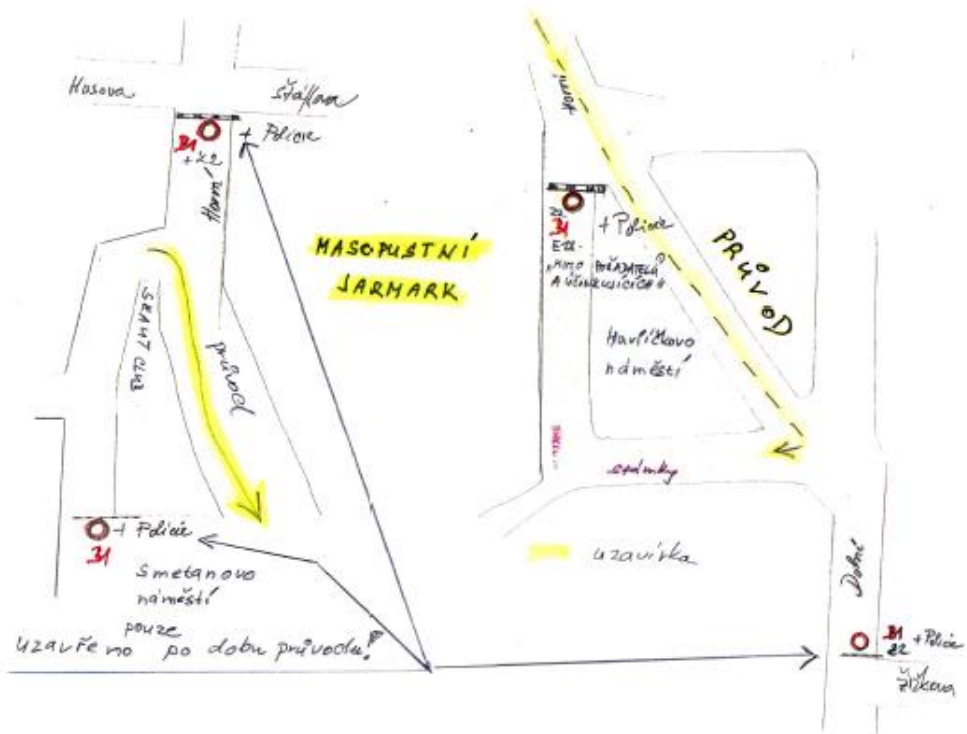 Husova
Štáflova
B1
+ Z2
+ Policie
Horní
MASOPUSTNÍ
JARMARK
průvod
+ Policie
B1
Smetanovo
náměstí
pouze
uzavřeno po dobu průvodu!
Horní
B1
+ Policie
"MIMO POŘADATELŮ
A ÚČINKUJÍCÍCH"
PRŮVOD
Havlíčkovo
náměstí
stánky
uzavírka
Dolní
B1
Z2
+ Policie
Žižkova